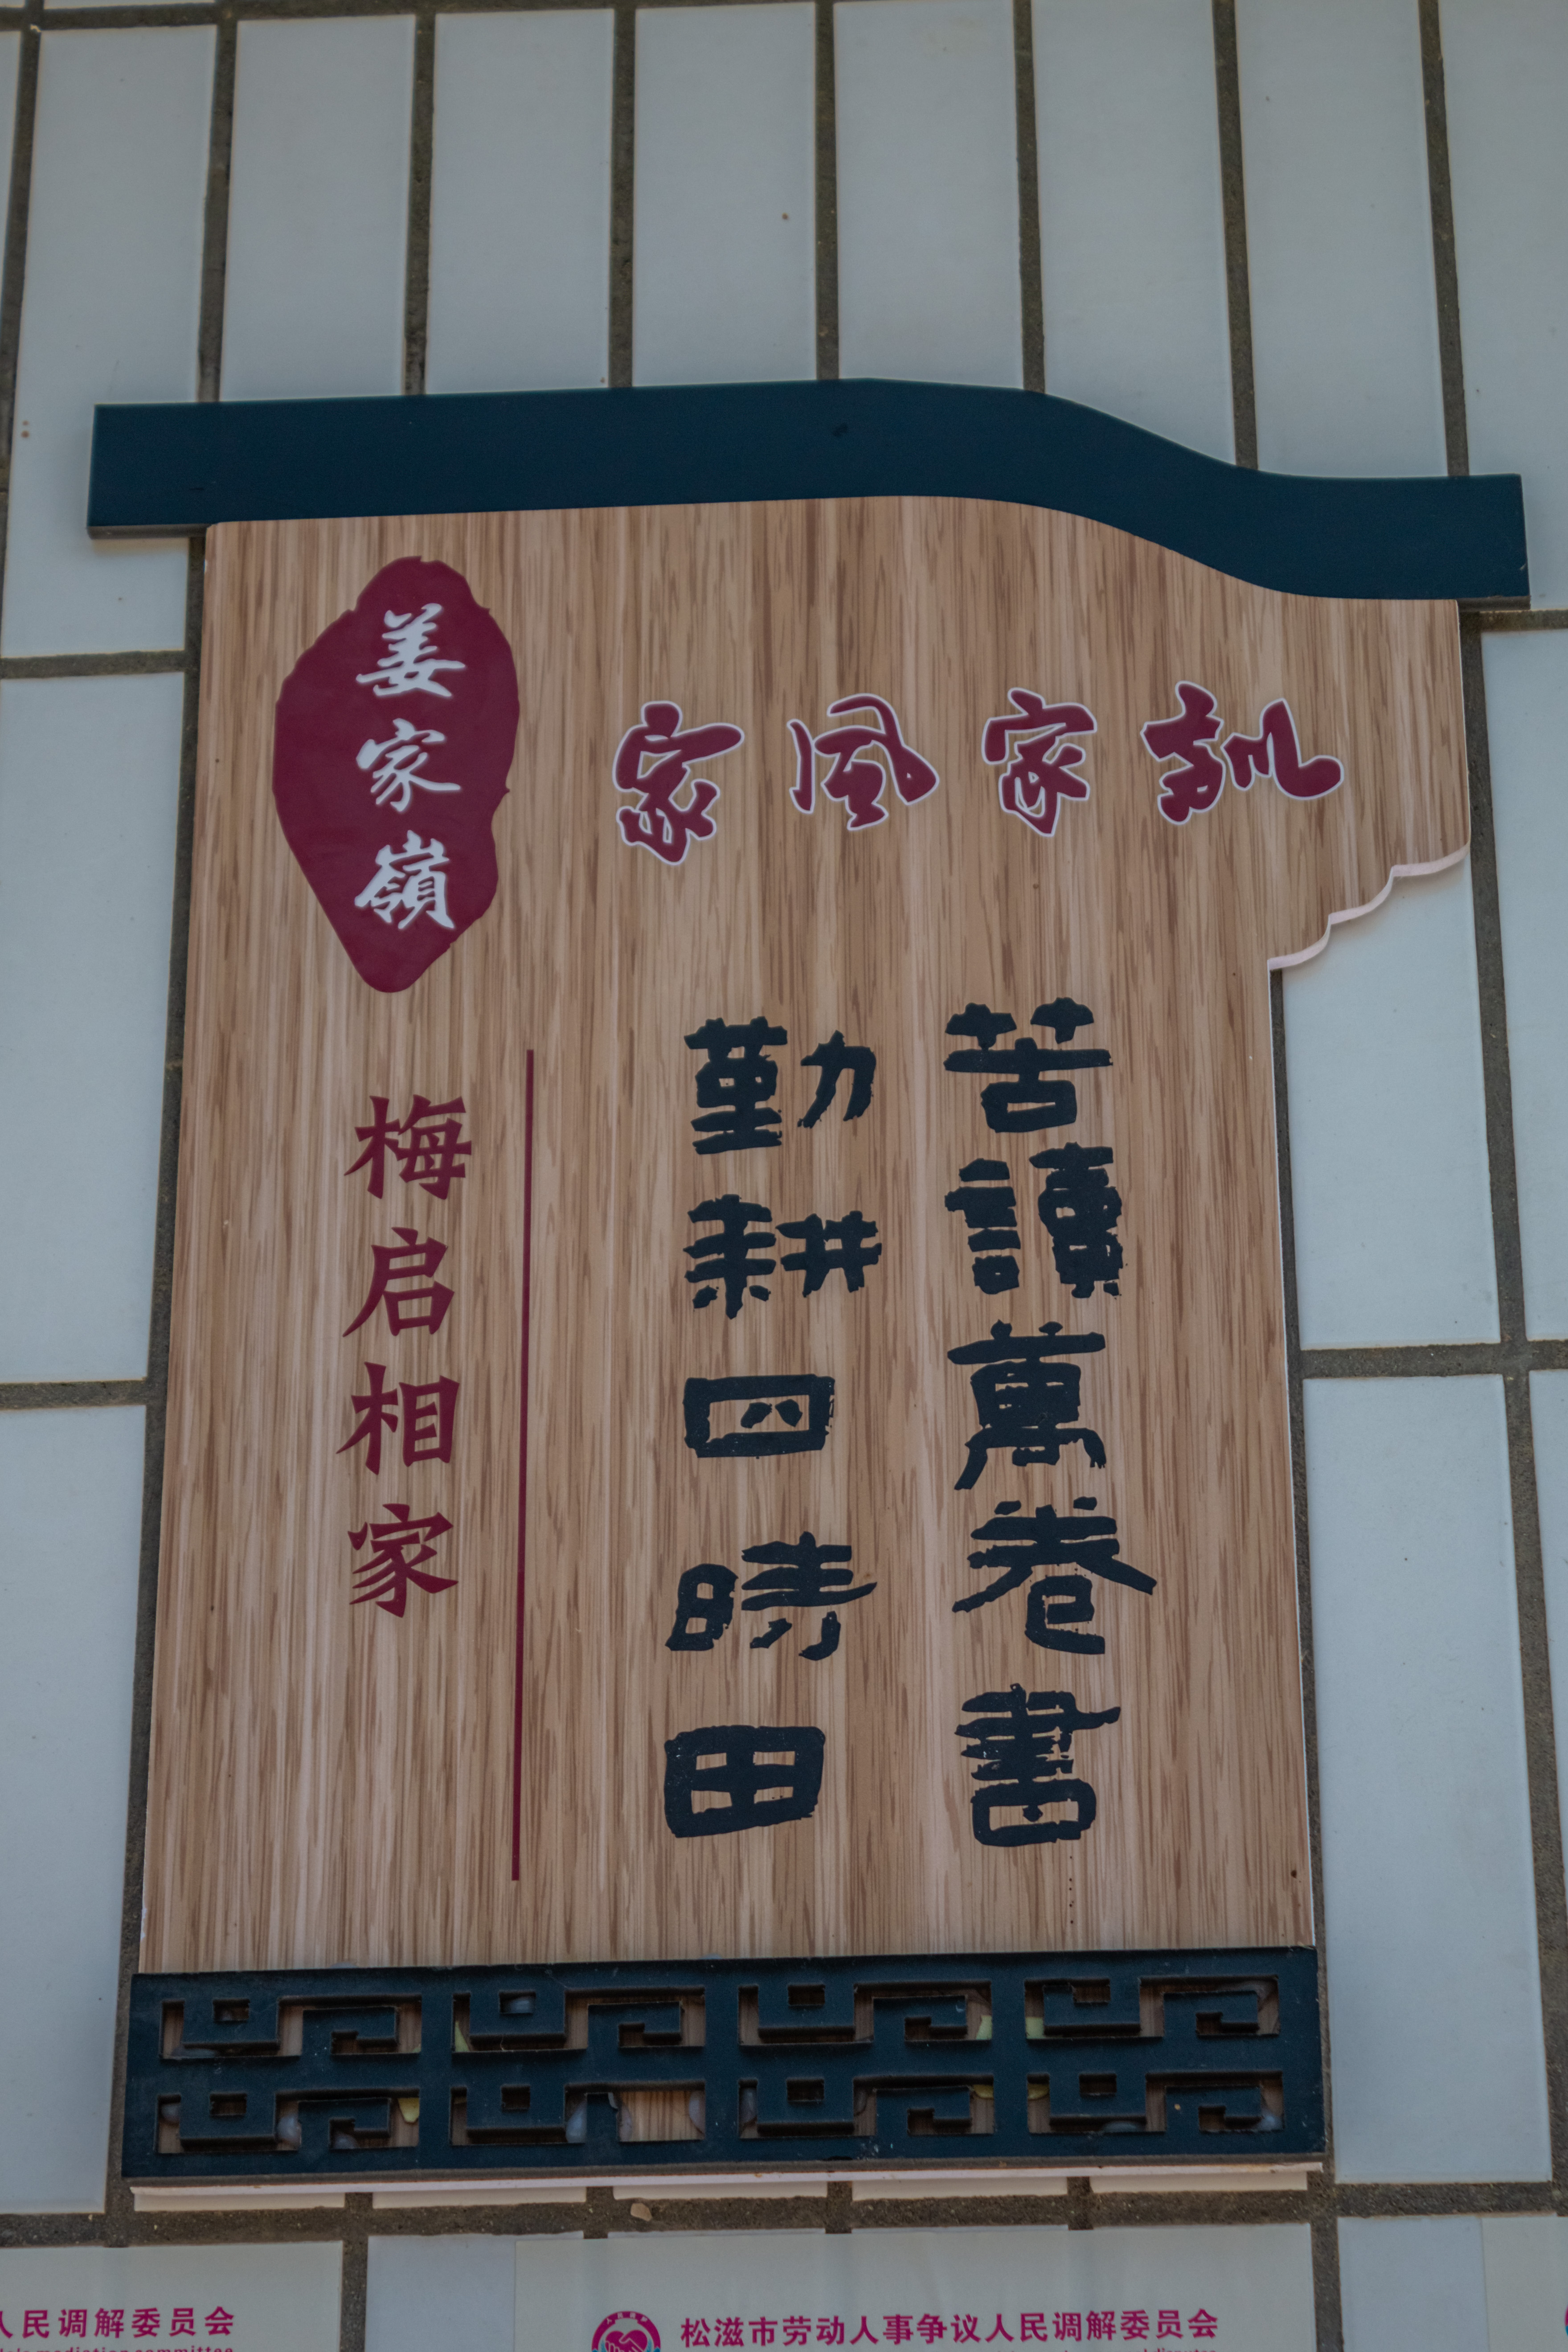 姜家嶺
家風家訓
苦讀萬卷書
勤耕四時田
梅启相家
人民调解委员会
mediation committee
松滋市劳动人事争议人民调解委员会